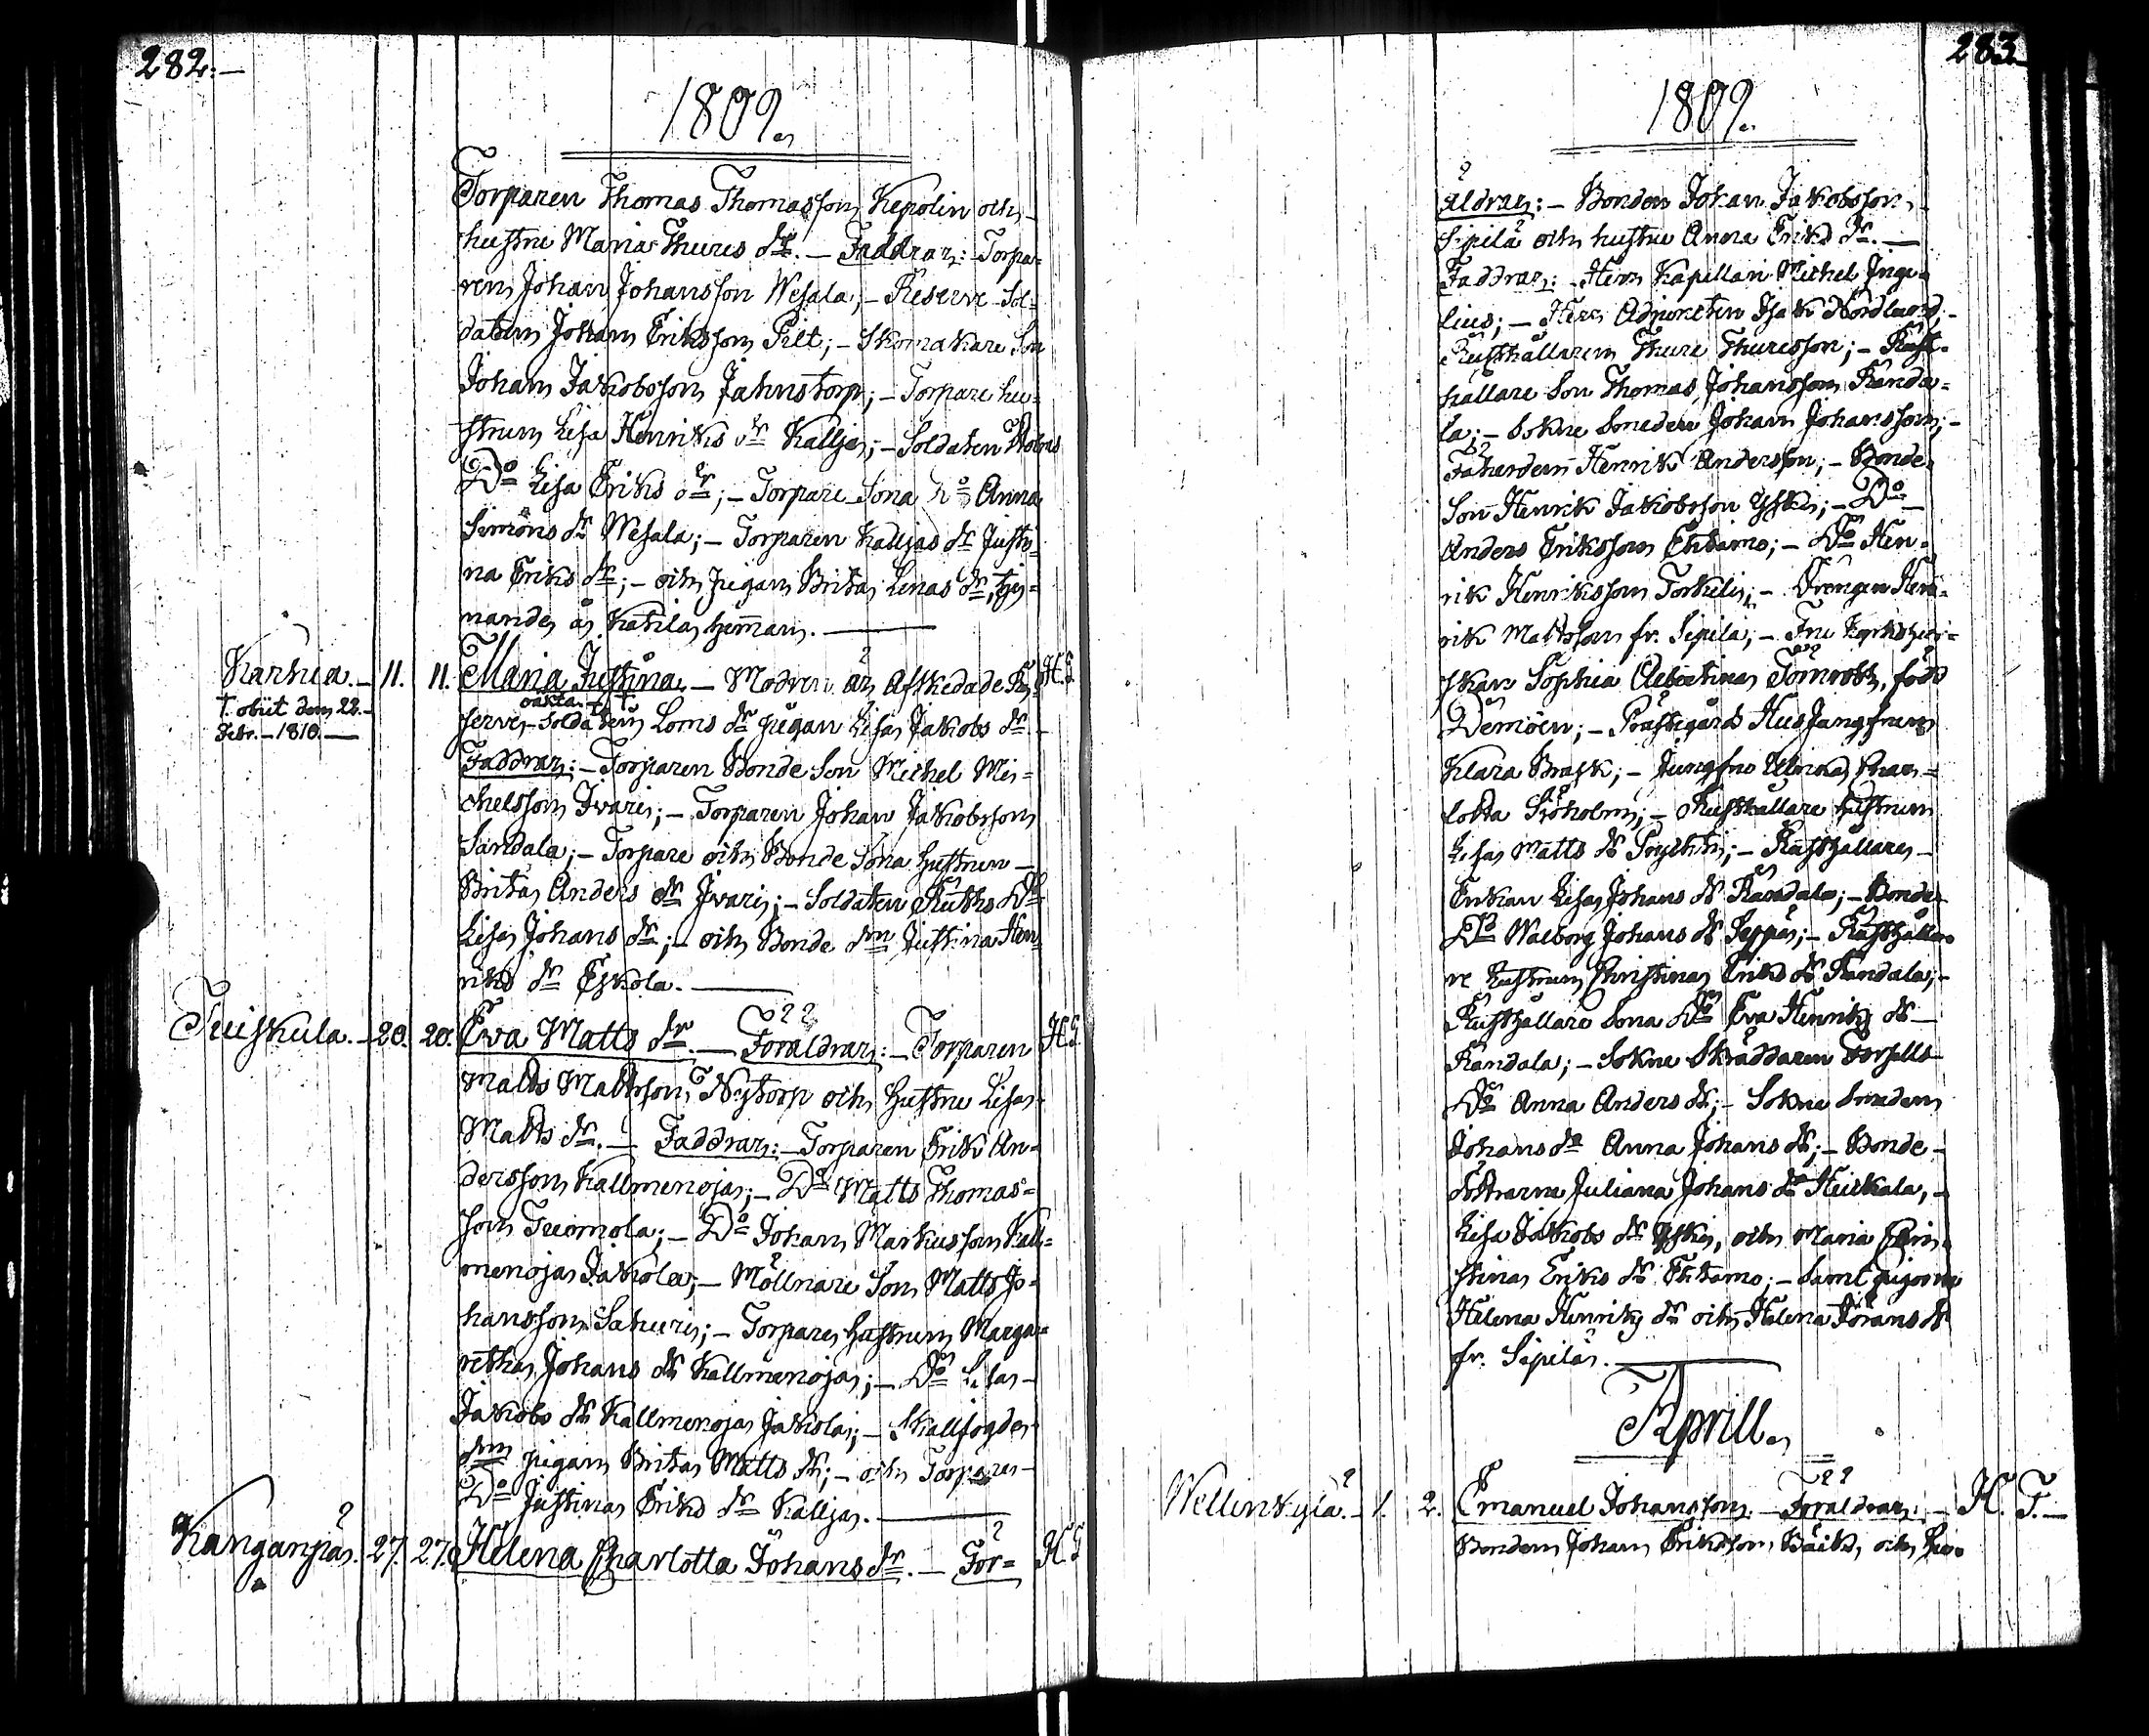 282.
1809.
Torparen Thomas Thomasson Kepolin och
hustru Maria Thures dr. — Faddrar: Torpa=
ren Johan Johansson Wesala; — Reserve Sol=
daten Johan Eriksson Pilt; — Skomakare Son
Johan Jakobsson Jahnstorp; — Torpare hu=
strun Lisa Henriks dr Kallja; — Soldaten
Do Lisa Eriks dr; — Torpare Sona Do Anna
Simons dr Wesala; — Torparen Kalljas dr Justi=
na Eriks dr; — och pigan Brita Lenas dr, tje=
nande å Katila heman.
Karhia. — 11. 11. Maria Justina. — Modren är Afskedade Re= H. T.
oäkta
serve-Soldaten Loms dr pigan Lisa Jakobs dr
† obiit den 22.
Febr. — 1810. —
Faddrar: — Torparen Bonde Son Michel Mi=
chelsson Ivari; — Torparen Johan Jakobsson
Sandala; — Torpare och Bonde Sona hustrun —
Brita Anders dr Ivari; — Soldaten Ruths Do
Lisa Johans dr; — och Bonde drn Justina Hen=
riks dr Eskola.
Tuiskula. — 20. 20. Eva Matts dr. — Föräldrar: — Torparen H. T.
Matts Mattsson Nytorp och hustru Lisa
Matts dr. — Faddrar: — Torparen Erik An=
dersson Kallmenoja; — Do Matts Thomas=
son Tuomola; — Do Johan Markusson Kall=
menoja Jakola; — Möllnare Son Matts Jo=
hansson Sahuri; — Torpare hustrun Marga=
retha Johans dr Kallmenoja; — Do Lisa
Jakobs dr Kallmenoja Jakola; — Skallfogde
drn pigan Brita Matts dr; — och Torpare
Do Justina Eriks dr Kallja.
Kanganpää. 27. 27. Helena Charlotta Johans dr. — För= H. T.
283.
1809.
äldrar: — Bonden Johan Jakobsson
Sipilä och hustru Anna Eriks dr. —
Faddrar: — Herr Kapellan Michel Inge=
lius; — Herr Adjuncten Isak Nordlund; —
Rusthållaren Thure Thuresson; — Rust=
hållare Son Thomas Johansson Randa=
la; — Sokne Smeden Johan Johansson; —
Henrik Andersson; — Bonde
Son Henrik Jakobsson Yski; — Do
Anders Eriksson Ehtamo; — Do Hen=
rik Henriksson Torkeli; — Drengen Hen=
rik Mattsson fr. Sipilä; — Fru
Sophia Albertina född
Demoen; — Prästgårds Husjungfrun
Klara Brask; — Jungfru Ulrica Char=
lotta Sjöholm; — Rusthållare hustrun
Lisa Matts dr Pöyhtti; — Rusthållare
Enkan Lisa Johans dr Randala; — Bonde
Do Walborg Johans dr Seppä; — Rusthålla=
re hustrun Christina Eriks dr Randala; —
Rusthållare Sona Do Eva Henriks dr —
Randala; — Sokne Skräddaren Forssells
Do Anna Anders dr; — Sokne Smeden
Johans dr Anna Johans dr; — Bonde
döttrarna Juliana Johans dr Heickala, —
Lisa Jakobs dr Yski, och Maria Chri=
stina Eriks dr Ehtamo; — Samt pigorna
Helena Henriks dr och Helena Jörans dr
fr. Sipilä.
Aprill.
Wellinkylä. — 1. 2. Emanuel Johansson. — Föräldrar: — H. T. —
Bonden Johan Eriksson Bäck, och hu=